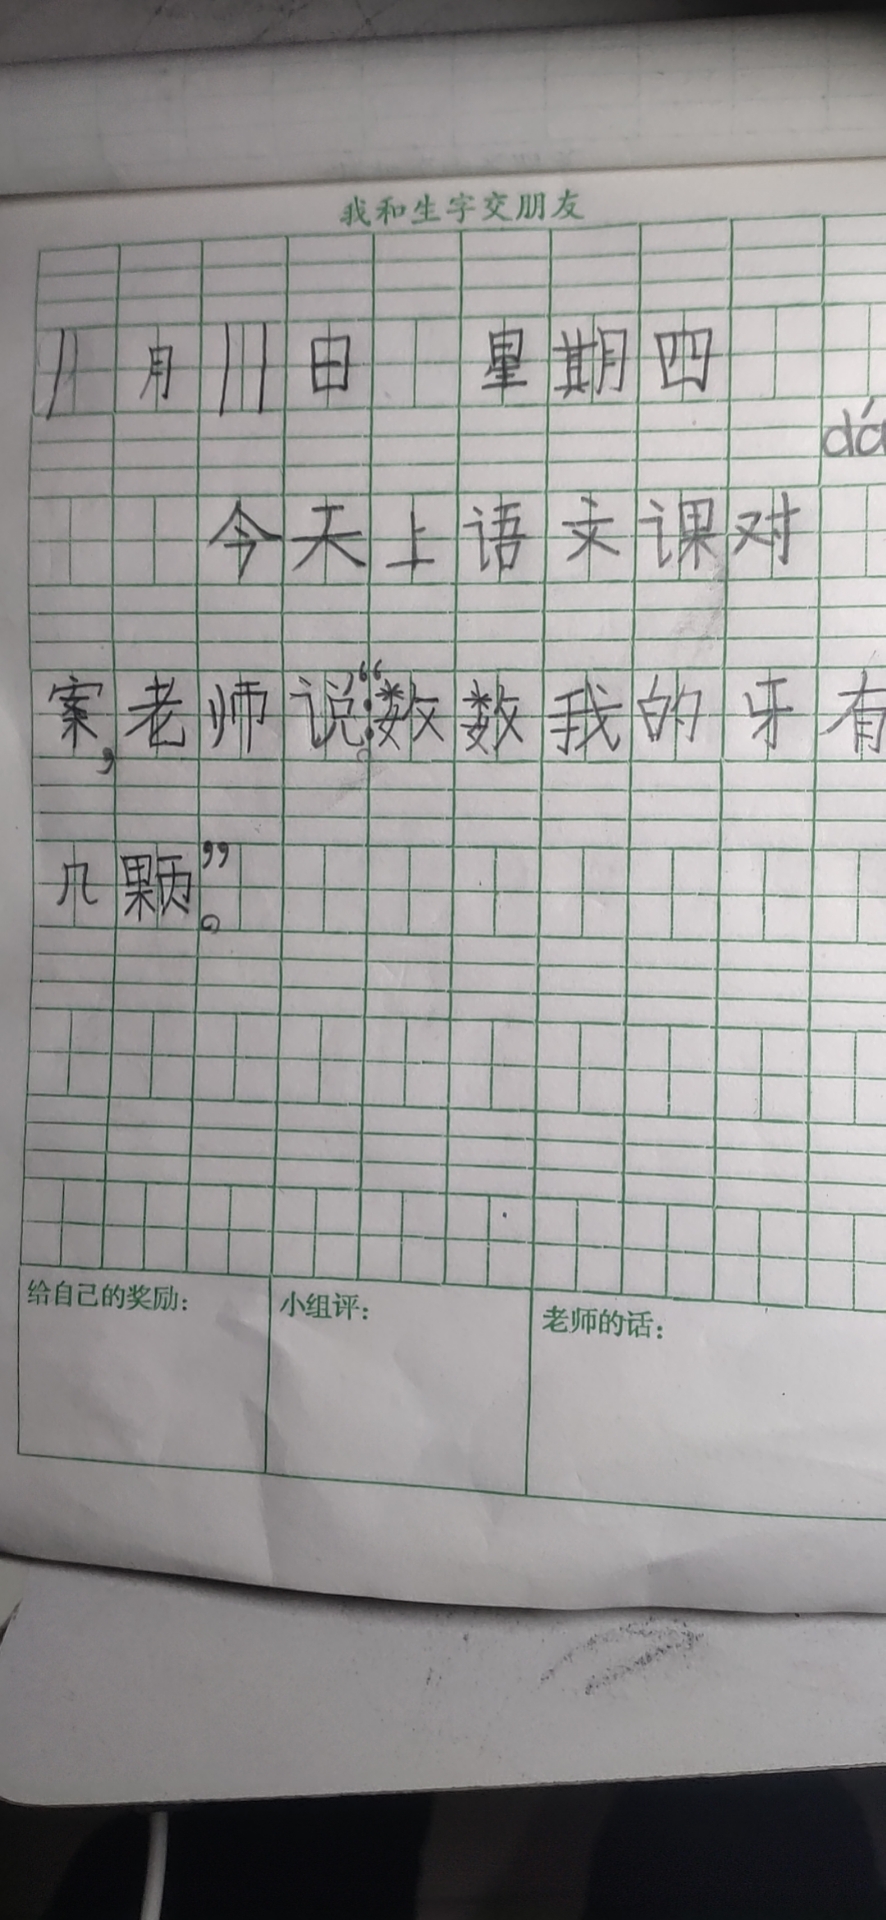 我和生字交朋友
11月11日 星期四
dá
今天上语文课对
案,老师说:“数数我的牙有
几颗”。
给自己的奖励:
小组评:
老师的话: